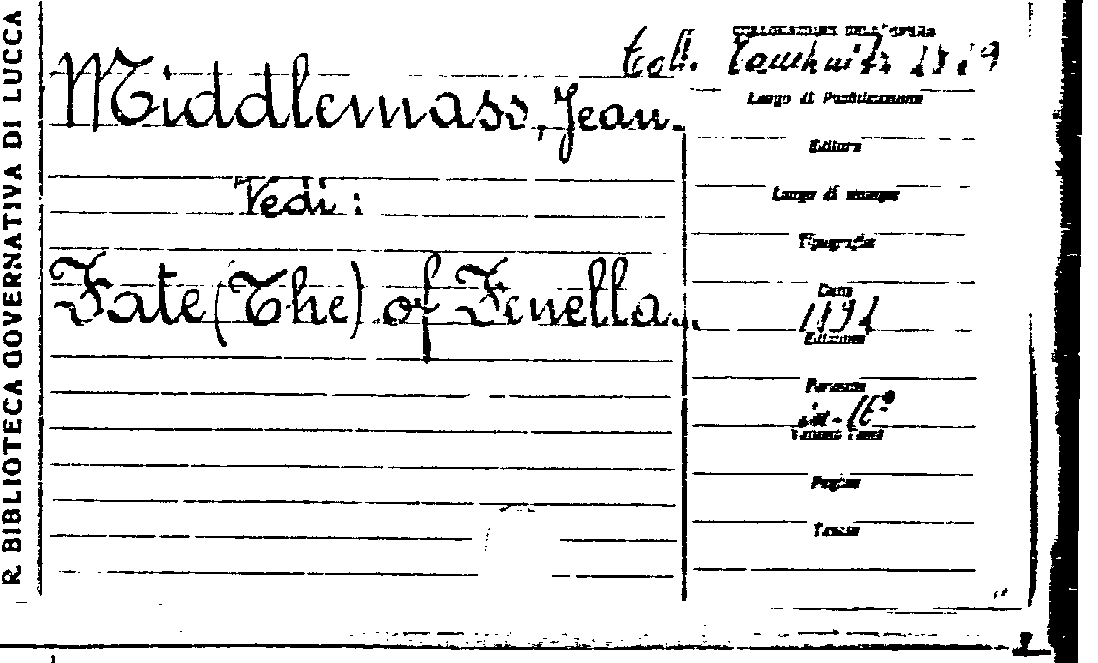 R. BIBLIOTECA GOVERNATIVA DI LUCCA
COLLOCAZIONE DELL'OPERA
Coll. Tauchnitz
Middlemass, Jean.
Vedi:
Fate (The) of Fenella.
Luogo di Pubblicazione
Editore
Luogo di stampa
Tipografia
Data
Edizione
Formato
in-16°
Volumi
Pagine
Tavole